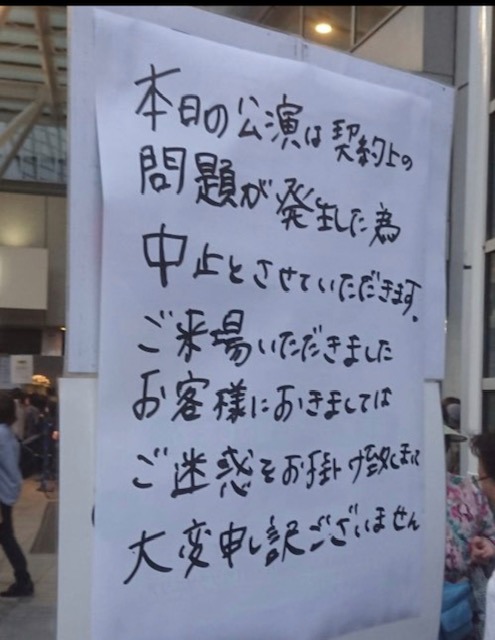 本日の公演は契約上の
問題が発生した為
中止とさせていただきます。
ご来場いただきました
お客様におきましては
ご迷惑をお掛け致しまして
大変申し訳ございません